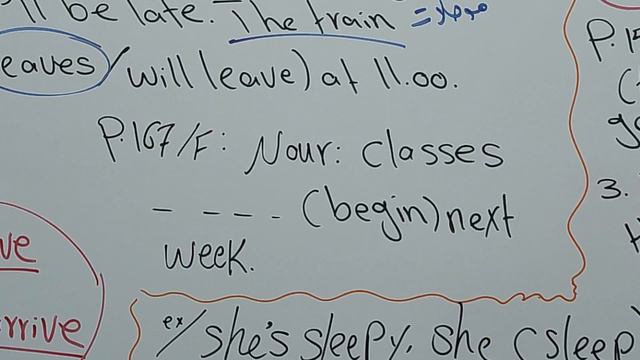 'll be late. The train = موعد
eaves / will leave) at 11.00.
P.167/F: Nour: classes
_ _ _ _ (begin) next
week.
ve
rrive
P.15
(
g
3.
ex/ she's sleepy. She (sleep